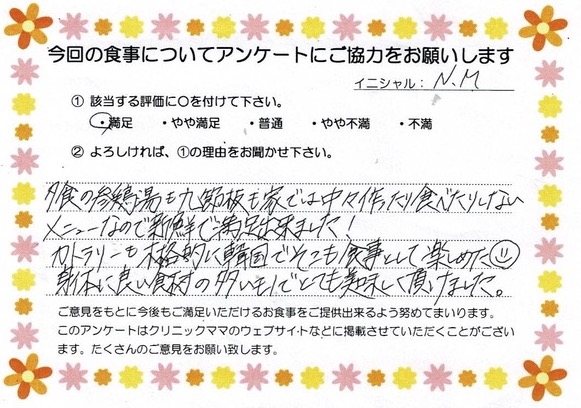 今回の食事についてアンケートにご協力をお願いします
イニシャル： N.M
① 該当する評価に○を付けて下さい。
・満足 ・やや満足 ・普通 ・やや不満 ・不満
② よろしければ、①の理由をお聞かせ下さい。
夕食の参鶏湯も九節板も家では中々作ったり食べたりしない
メニューなので新鮮で満足出来ました！
カトラリーも本格的に韓国でそこも食事として楽しめた
身体に良い食材の多いもので とても美味しく頂けました。
ご意見をもとに今後もご満足いただけるお食事をご提供出来るよう努めてまいります。
このアンケートはクリニックママのウェブサイトなどに掲載させていただくことがござい
ます。たくさんのご意見をお願い致します。